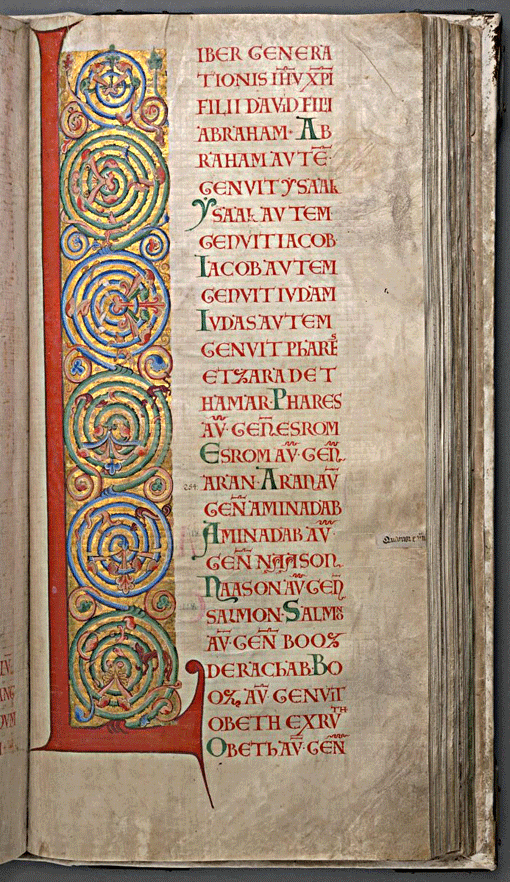 LIBER GENERA
TIONIS IHV XPI
FILII DAVID FILII
ABRAHAM· AB
RAHAM AVTE
GENVIT YSAAK
YSAAK AVTEM
GENVIT IACOB
IACOB AVTEM
GENVIT IVDAM
IVDAS AVTEM
GENVIT PHARES
ET ZARAD ET
HAMAR· PHARES
AV· GEN ESROM
ESROM AV· GEN
ARAN· ARAN AV
GEN AMINADAB
AMINADAB AV·
GEN NAASON
NAASON AV GEN
SALMON· SALMON
AV· GEN BOOZ
DE RACHAB· BO
OZ· AV· GENVIT
OBETH EX RVTH
OBETH AV· GEN
264